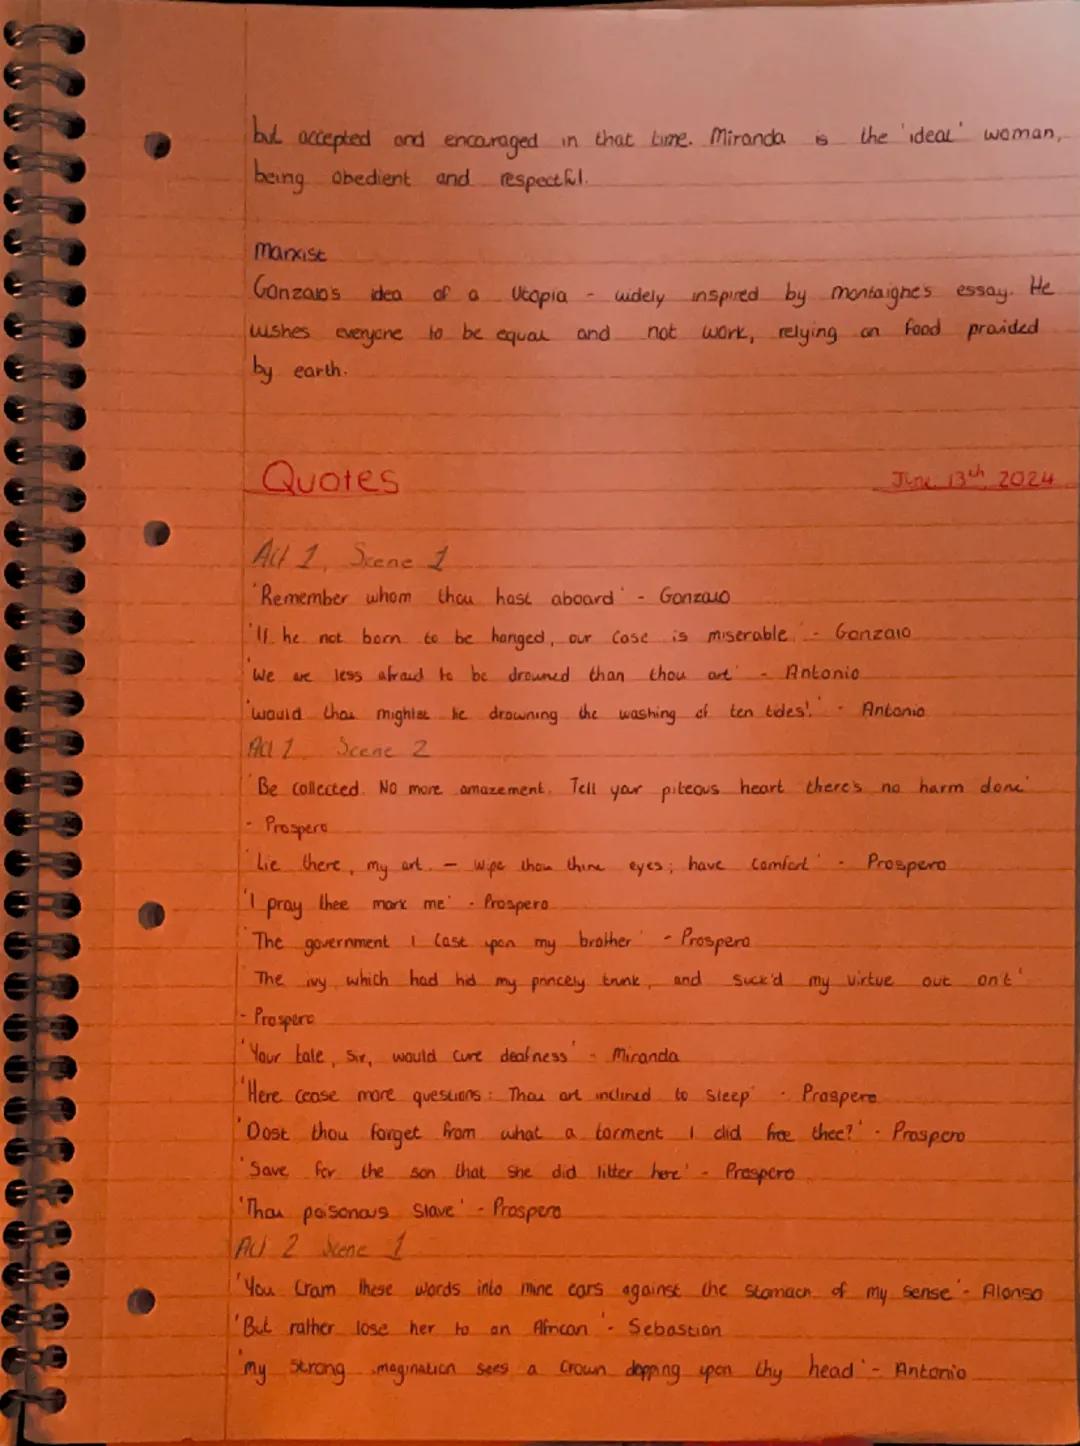 but accepted and encouraged in that time. Miranda is the 'ideal' woman,
being obedient and respectful.
Marxist
Gonzalo's idea of a Utopia - widely inspired by montaigne's essay. He
wishes everyone to be equal and not work, relying on food provided
by earth.
Quotes
June 13th 2024
Act 1, Scene 1
'Remember whom thou hast aboard' - Gonzalo
'If he not born to be hanged, our case is miserable.' - Gonzalo
'We are less afraid to be drowned than thou art' - Antonio
'would thou mightst lie drowning the washing of ten tides!' - Antonio
Act 1 Scene 2
'Be collected. No more amazement. Tell your piteous heart there's no harm done'
- Prospero
'Lie there, my art. - Wipe thou thine eyes; have comfort' - Prospero
'I pray thee mark me' - Prospero
'The government I cast upon my brother' - Prospero
'The ivy which had hid my princely trunk, and suck'd my virtue out on't'
- Prospero
'Your tale, Sir, would cure deafness' - Miranda
'Here cease more questions: Thou art inclined to sleep' - Prospero
'Dost thou forget from what a torment I did free thee?' - Prospero
'Save for the son that she did litter here' - Prospero
'Thou poisonous slave' - Prospero
Act 2 Scene 1
'You cram these words into mine ears against the stomach of my sense' - Alonso
'But rather lose her to an African' - Sebastian
'my strong imagination sees a crown dopping upon thy head' - Antonio